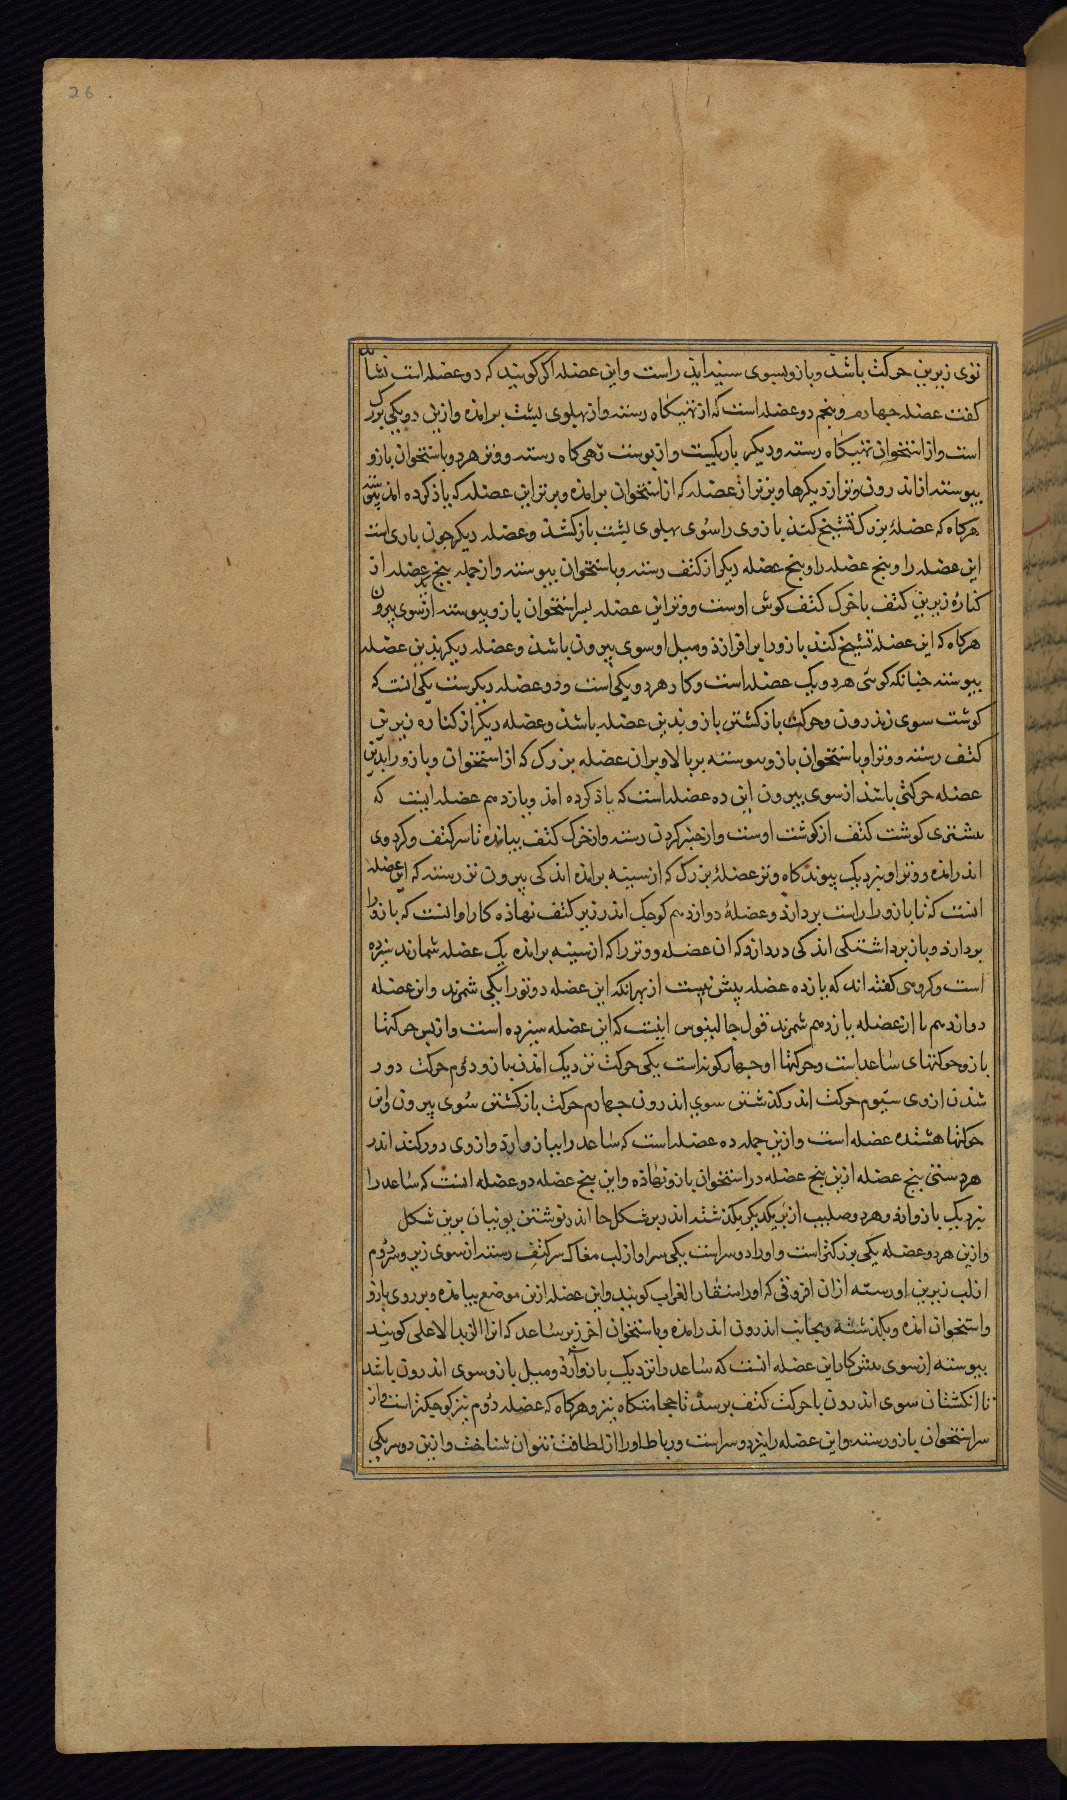 26
توی زیرین حرکت باشد و بازو بسوی سینه آید راست و این عضله اکر کویند که دو عضله است نشاید
کفت عضله چهارم و پنجم دو عضله است که از تهیکاه رسته و از پهلوی پشت برامده و ازین دو یکی بزرک
است و از استخوان تهیکاه رسته و دیکر باریکست و از پوست تهی کاه رسته و وتر هر دو باستخوان بازو
پیوسته از اندرون وتر از دیکرها و برتر از عضله که از استخوان برامده و برتر این عضله که یاد کرده امد پیوسته
هرکاه که عضلهٔ بزرک تشنج کند بازوی را سوی پهلوی پشت باز کشد و عضله دیکر چون یاری است
این عضله را و پنج عضله را و پنج عضله دیکر از کتف رسته و باستخوان پیوسته و از جمله پنج عضله از
کناره زیرین کتف با خرک کتف کوش اوست و وتر این عضله بسر استخوان بازو پیوسته از سوی بیرون
هرکاه که این عضله تشنج کند بازو را بر افرازد و میل او سوی بیرون باشد و عضله دیکر بدین عضله
پیوسته چنانکه کوئی هر دو یک عضله است و کار هر دو یکی است و دو عضله دیکرست یکی انست که
کوشت سوی زندرون و حرکت باز کشتن بازو بدین عضله باشد و عضله دیکر از کناره زیرین
کتف رسته و وتر او باستخوان بازو پیوسته بر بالا و بر ان عضله بزرک که از استخوان و بازو را بدین
عضله حرکتی باشد از سوی بیرون این ده عضله است که یاد کرده امد و یازدهم عضله اینست که
بیشتری کوشت کتف از کوشت اوست و از چنبر کردن رسته و از خرک کتف بیامده تا سر کتف و کردوی
اندرامده و وتر او بنزدیک پیوندکاه وتر عضلهٔ بزرک که از سینه برامده اندکی بیرون تر رسته که این عضله
انست که تا بازو را راست بردارد و عضلهٔ دوازدهم کوچک اندر زیر کتف نهاده کار او انست که بازو را
بردارد و باز برداشتکی اندکی در دارد که ان عضله و وتر را که از سینه برامده یک عضله شمارند سیزده
است و کروهی کفته اند که یازده عضله بیش نیست از بهر انکه این عضله دو تو را یکی شمرند و این عضله
دوازدهم با ان عضله یازدهم شمرند قول جالینوس اینست که این عضله سیزده است و از پس حرکتها
بازو حرکتهای ساعد است و حرکتها او چهار کونه است یکی حرکت نزدیک امدن ببازو دوم حرکت دور
شدن از وی سیوم حرکت اندر کذشتن سوی اندرون چهارم حرکت باز کشتن سوی بیرون و این
حرکتها هشتده عضله است و ازین جمله ده عضله است که ساعد را ببازو آرد و از وی دور کند اندر
هر دستی پنج عضله ازین پنج عضله در استخوان بازو نهاده و این پنج عضله دو عضله انست که ساعد را
نزدیک بازو آرد و هر دو صلیب از بر یکدیکر بکذشته اندر بن شکل حا اندر نوشتن یونیان برین شکل
و ازین هر دو عضله یکی بزرکتر است و او را دو سراست یکی سر او از لب مغاک سر کتف رسته از سوی زیر و سر دوم
از لب زیرین او رسته از ان افزونی که او را منقار الغراب کویند و این عضله ازین موضع بیامده و بر روی بازو
و استخوان امده و بکذشته و بجانب اندرون اندرامده و باستخوان اخر زیر ساعد که انرا الزند الاعلی کویند
پیوسته از سوی پیش کار این عضله انست که ساعد را نزدیک بازو آرد و میل بازو سوی اندرون باشد
تا انکشتان سوی اندرون با حرکت کتف برسد تا حجامتکاه نیز و هرکاه که عضله دوم نیز کوچکتر است و از
سر استخوان بازو رسته و این عضله را نیز دو سراست و رباط او را از لطافت نتوان شناخت و ازین دو سر یکی